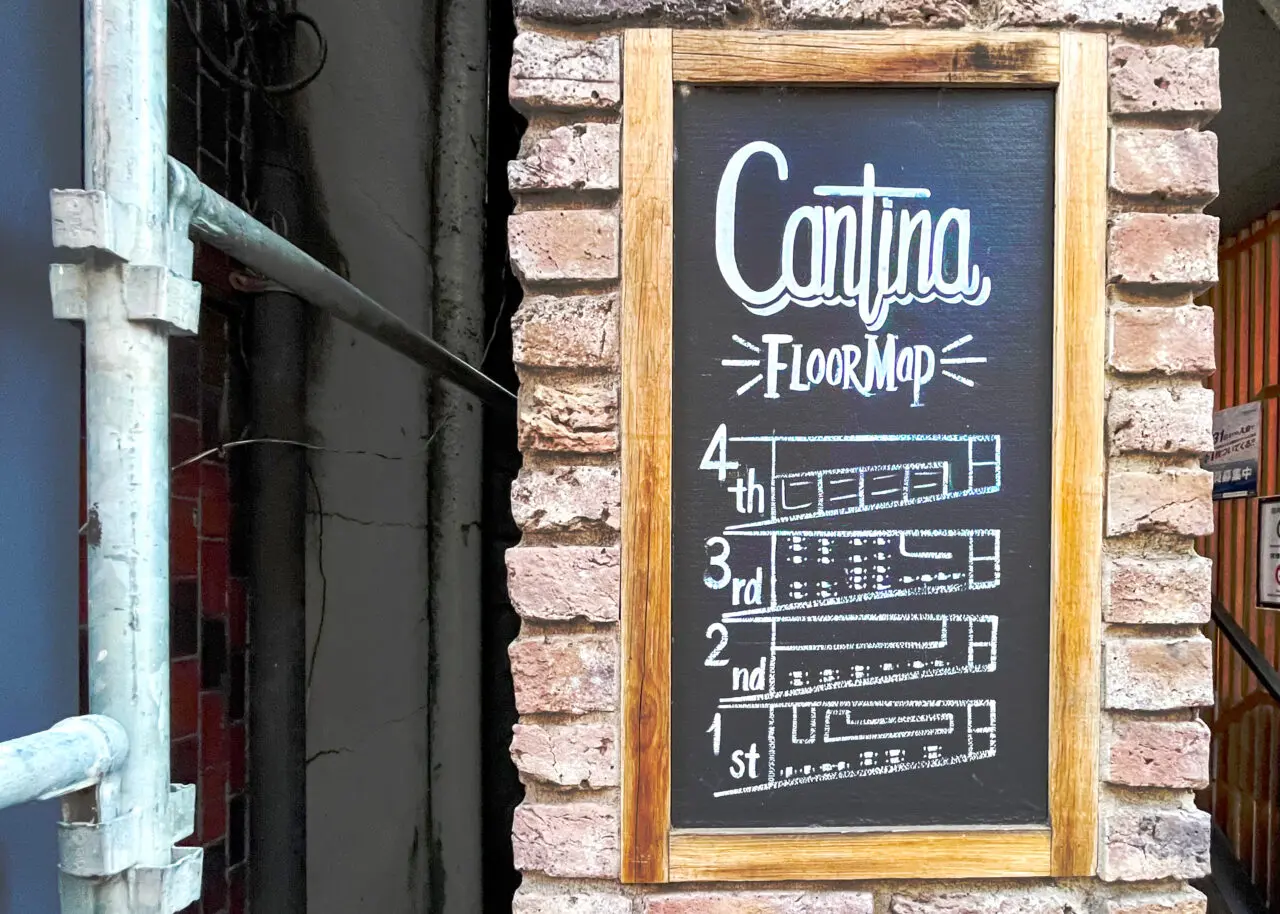 Cantina
FLOORMap
4th
3rd
2nd
1st
募集中